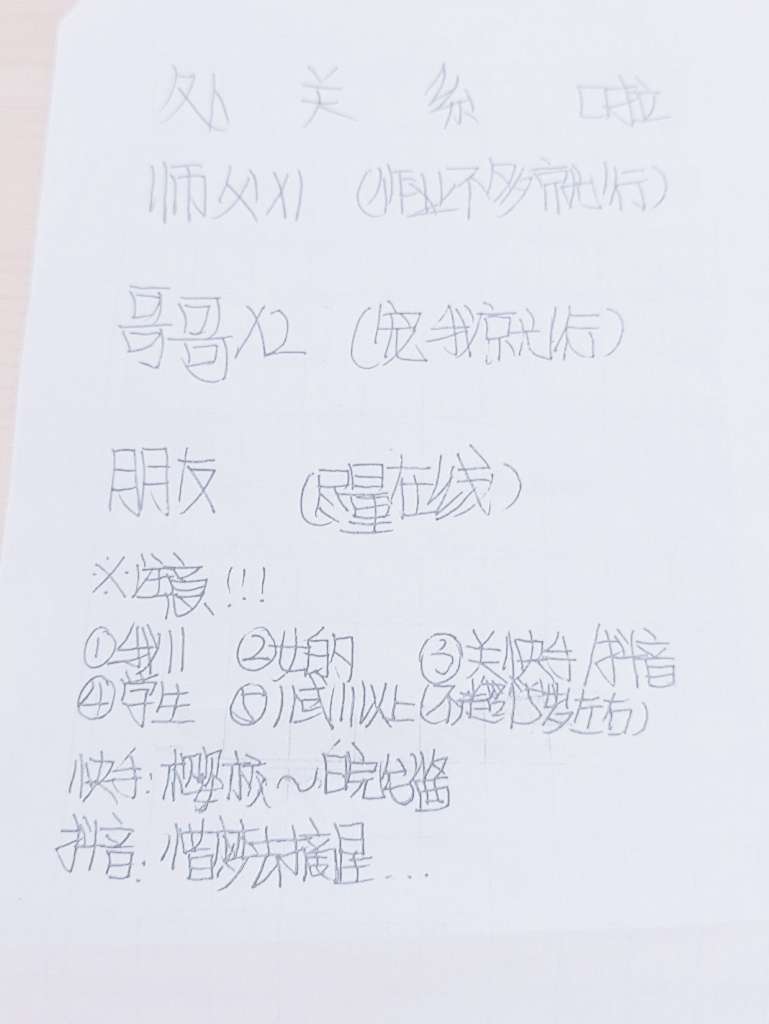 处 关 系 啦
师父X1 (作业不多就行)
哥哥X2 (宠我就行)
朋友 (尽量在线)
※注意!!!
①我11 ②女的 ③关快手/抖音
④学生 ⑤11或11以上(不超15岁左右)
快手:樱桃~白院酱
抖音:惜梦去摘星...